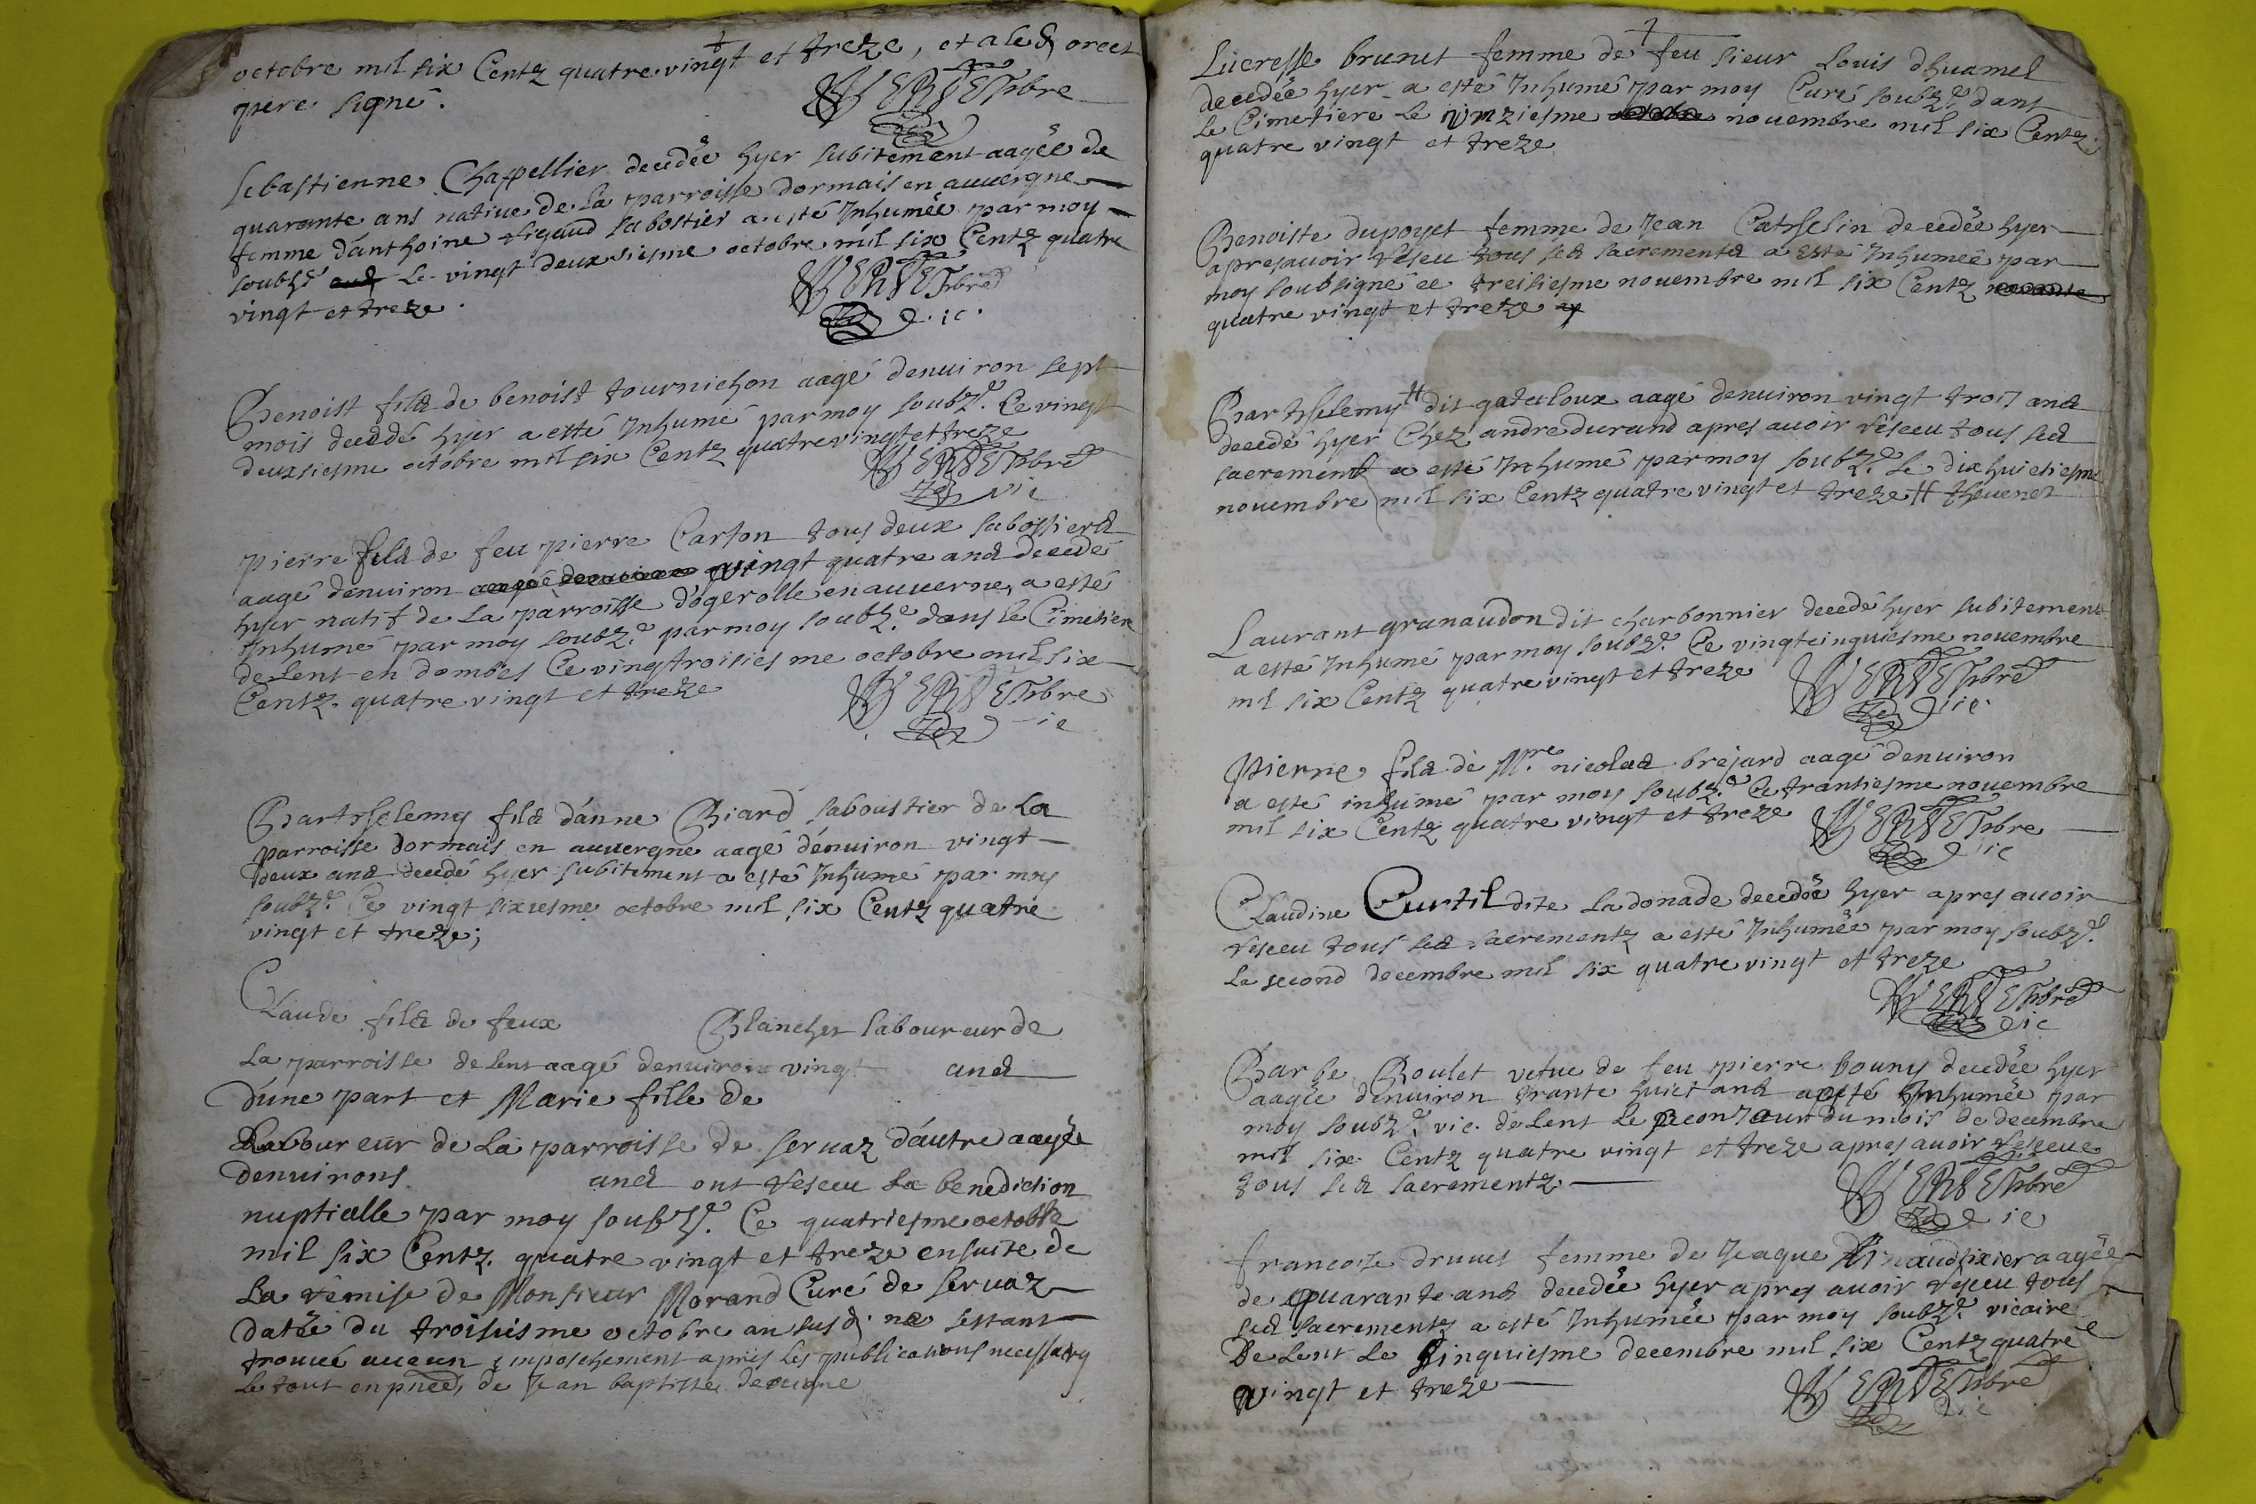 octobre mil six Centz quatre vingt et treze, et a led.
pere signé.
VERTET pbre
Sebastienne Chappellier decedée hyer subitement aagée de
quarante ans native de la parroisse dormais en auuergne
femme d'anthoine rigaud sabostier a esté Inhumée par moy
soubzé le vingt deuxsiesme octobre mil six Centz quatre
vingt et treze.
VERTET pbre
vic.
Benoist filz de benoist tournichon aagé denuiron sept
mois decedé hyer a esté Inhumé par moy soubzé. Ce vingt
deuxsiesme octobre mil six Centz quatre vingt et treze
VERTET pbre
vic
Pierre filz de feu pierre Carton tous deux sabostiers
aagé denuiron vingt quatre ans decedé
hyer natif de la parroisse d'ogerolle en auuerne, a esté
Inhumé par moy soubzé. par moy soubzé. dans le Cimetiere
de Lent en dombes Ce vingt troisiesme octobre mil six
Centz. quatre vingt et treze
VERTET pbre
vic
Barthelemy filz d'anne Biard saboustier de la
parroisse dormais en auuergne aagé d'enuiron vingt
deux ans decedé hyer subitement a esté Inhumé par moy
soubzé. Ce vingt sixiesme octobre mil six Centz quatre
vingt et treze;
Claude filz de feux Blanchet laboureur de
la parroisse de lent aagé denuiron vingt ans
d'une part et Marie fille de
Laboureur de la parroisse de seruaz d'autre aagée
denuirons ans ont reseeu la benediction
nuptialle par moy soubzé. Ce quatriesme octobre
mil six Centz. quatre vingt et treze ensuite de
La remise de Monsieur Morand Curé de seruaz
datée du troisiesme octobre an susd. ne sestant
trouué aucun empeschement apres les publications necessairs
le tout en pnce de Jean baptiste
Lucresse brunet femme de feu sieur Louis dhuamel
decedée hyer a esté Inhumé par moy Curé soubzé. dans
le Cimetiere le unziesme nouembre mil six Centz.
quatre vingt et treze
Benoiste dupoyet femme de Jean Cathelin decedée hyer
apres auoir reseu tous ses sacrements a esté Inhumée par
moy soubsigné ce treisiesme nouembre mil six Centz
quatre vingt et treze
Barthelemy # dit gateloux aagé denuiron vingt trois ans
decedé hyer Chez andre durand apres auoir reseeu tous ses
sacrements a esté Inhumé par moy soubzé. le dixhuictiesme
nouembre mil six Centz quatre vingt et treze # theuenet
Laurant granaudon dit charbonnier decedé hyer subitement
a esté Inhumé par moy soubzé. Ce vingtcinquiesme nouembre
mil six Centz quatre vingt et treze
VERTET pbre
vic.
Pierre filz de Mre nicolas brejard aagé denuiron
a esté inhumé par moy soubzé. Ce trantiesme nouembre
mil six Centz quatre vingt et treze
VERTET pbre
vic
Claudine Curtil dite La donade decedée hyer apres auoir
reseeu tous ses sacrementz a esté Inhumée par moy soubzé.
Le second decembre mil six quatre vingt et treze
VERTET pbre
vic
Barbe Boulet vefue de feu pierre bouny decedée hyer
aagée denuiron trante huict ans a esté Inhumée par
moy soubzé. vic. de Lent le second jour du mois de decembre
mil six Centz quatre vingt et treze apres auoir reseeue
tous ses sacrementz.
VERTET pbre
vic
francoise druuet femme de Jeaque tixier aagée
de quarante ans decedée hyer apres auoir reseeu tous
ses sacrementz a esté Inhumée par moy soubzé vicaire
De Lent Le Cinquiesme decembre mil six Centz quatre
vingt et treze
VERTET pbre
vic